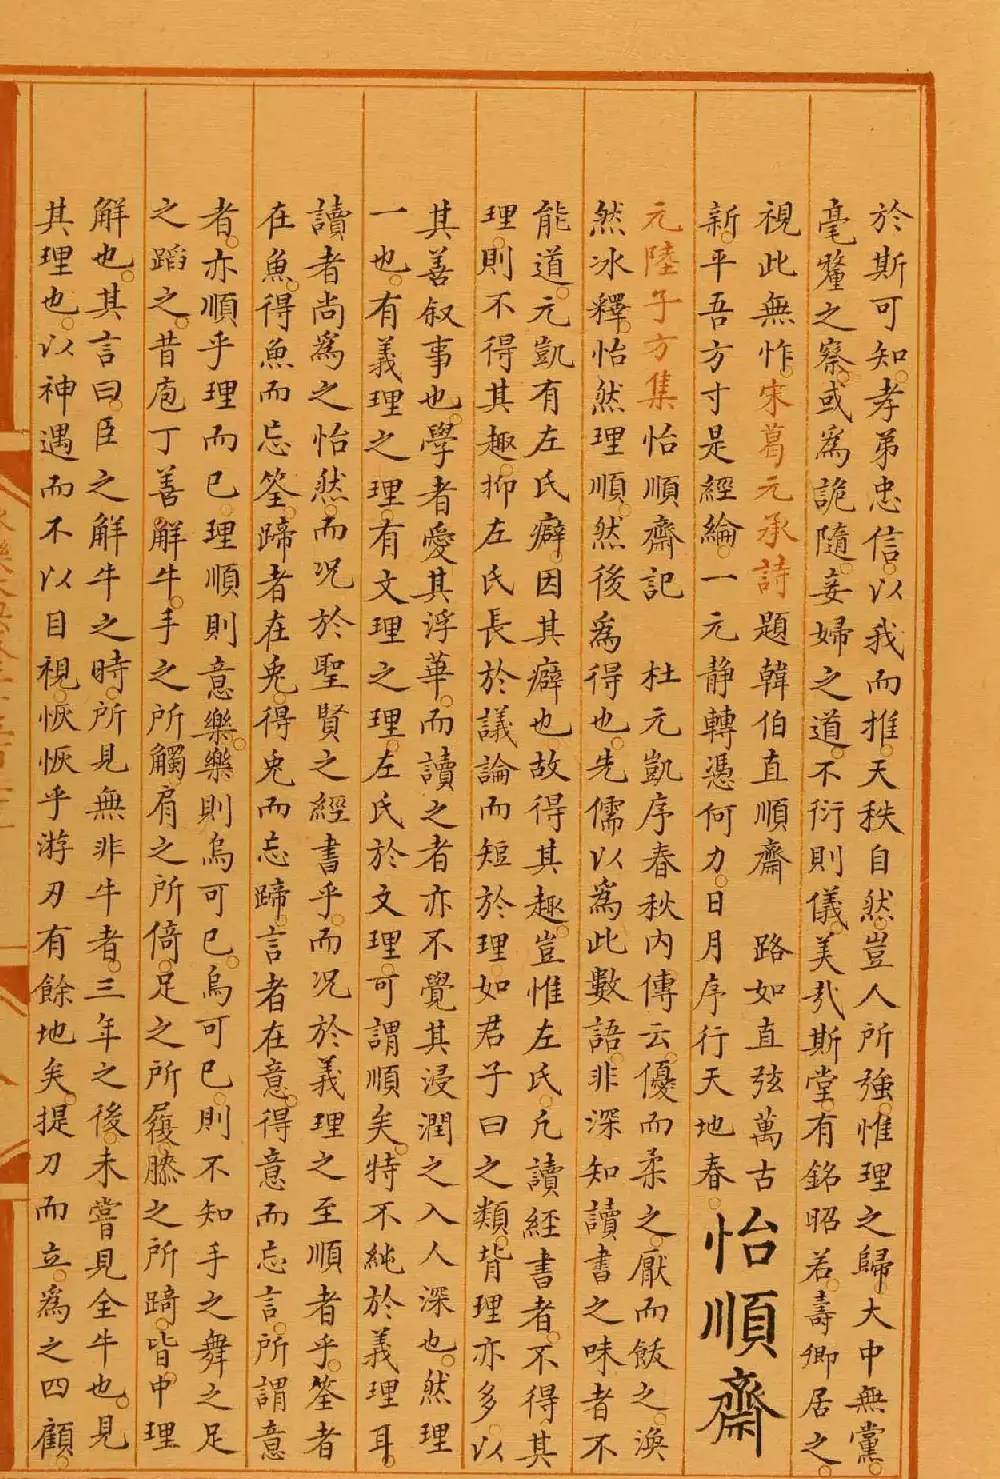 於斯可知孝弟忠信以我而推天秩自然豈人所強惟理之歸大中無黨
毫釐之察或爲詭隨妾婦之道不衍則儀美哉斯堂有銘昭若壽卿居之
視此無怍宋葛元承詩題韓伯直順齋　路如直弦萬古
新平吾方寸是經綸一元静轉憑何力日月序行天地春
怡順齋
元陸子方集怡順齋記　杜元凱序春秋内傳云優而柔之厭而飫之渙
然冰釋怡然理順然後爲得也先儒以爲此數語非深知讀書之味者不
能道元凱有左氏癖因其癖也故得其趣豈惟左氏凢讀經書者不得其
理則不得其趣抑左氏長於議論而短於理如君子曰之類背理亦多以
其善叙事也學者愛其浮華而讀之者亦不覺其浸潤之入人深也然理
一也有義理之理有文理之理左氏於文理可謂順矣特不純於義理耳
讀者尚爲之怡然而况於聖賢之經書乎而况於義理之至順者乎筌者
在魚得魚而忘筌蹄者在兎得兎而忘蹄言者在意得意而忘言所謂意
者亦順乎理而已理順則意樂樂則烏可已烏可已則不知手之舞之足
之蹈之昔庖丁善解牛手之所觸肩之所倚足之所履膝之所踦皆中理
解也其言曰臣之解牛之時所見無非牛者三年之後未嘗見全牛也見
其理也以神遇而不以目視恢恢乎游刃有餘地矣提刀而立爲之四顧